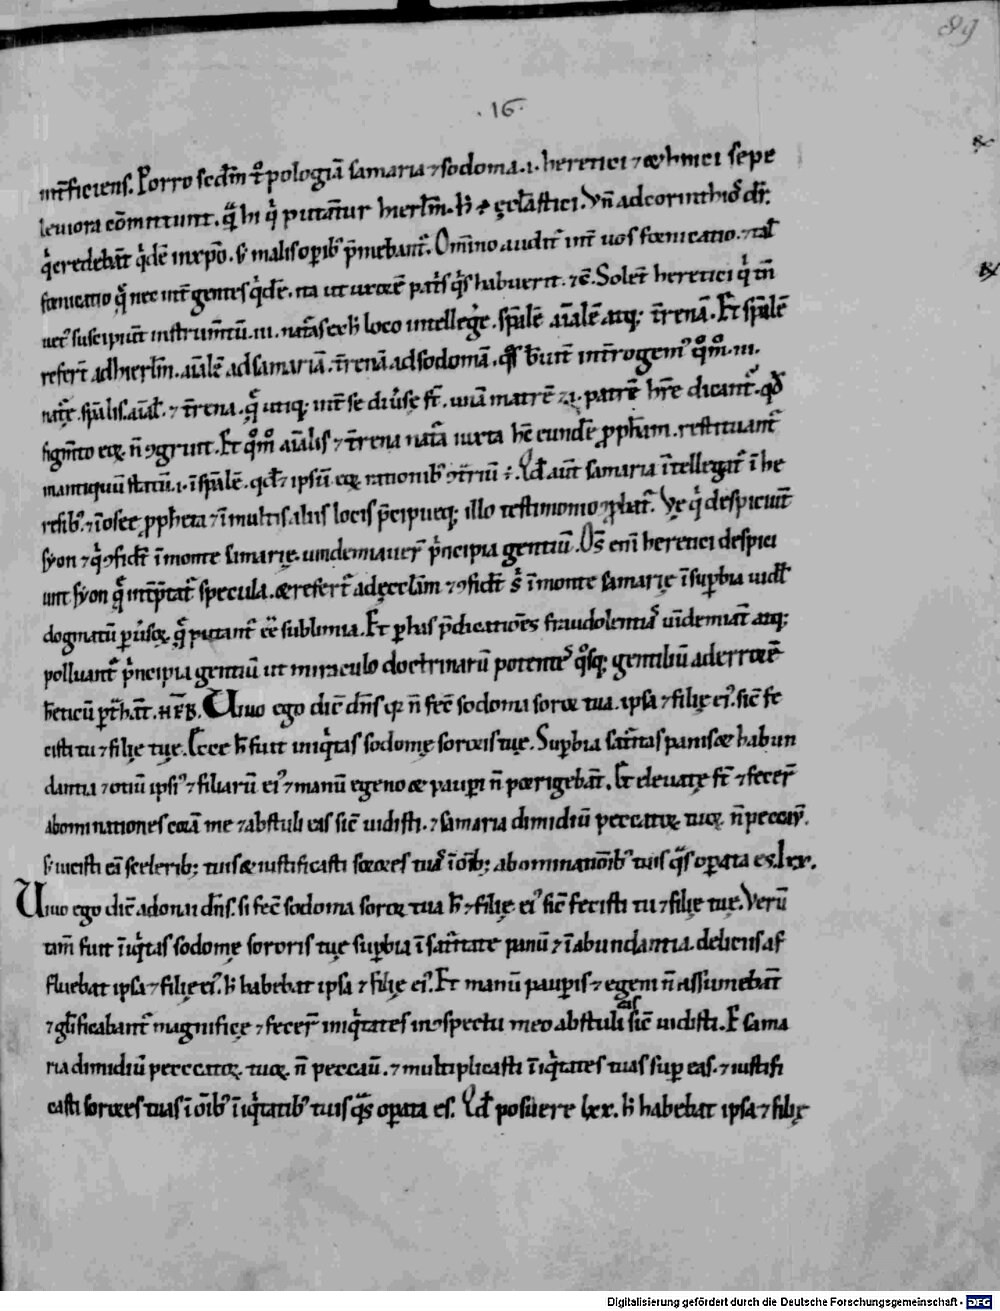 89
.16.
int̄ficiens. Porro scd̄m t͛pologiā samaria ⁊ sodoma .i. heretici ⁊ ethnici sepe
leuiora cōmittunt. q̄ hi q̇ putant᷑ hierl̄m. h̄ ÷ ęcl̄astici. Vn̄ ad corinthios dr̄.
q̇ credebāt q̇dē in xp̄o. s; malis op̄ib; p̄mebant᷑. Om̄ino audit᷑ int̄ uos fornicatio. ⁊ tal̄
fornicatio q̄ nec int̄ gentes q̇dē. ita ut uxorē pat̄s q̇s habuerit. ⁊c̄. Solent heretici q̇
uet᷒ suscipiunt instrum̄tū .iii. nat᷑as ex h̄ loco intellegere. sp̄alē aīalē atq; t̄renā. Et sp̄alē
refert᷑ ad hierl̄m. aīalē ad samariā. t̄renā ad sodomā.
natę. sp̄alis. aīal̄. ⁊ t̄rena. q̄ utiq; int̄ se diūse st̄. unā matrē
n̄ ꝯgruit. Et q̊m̊ aīalis ⁊ t̄rena nat᷑a iuxta hē eundē ꝓph̄am. restituant᷑
in antiquū statū .i. ī sp̄alē. Qd̄ aut̄ samaria ītellegat᷑ ī he
resib;. ⁊ ī osee ꝓpheta ⁊ ī multis aliis locis p̄cipueq; illo testimonio ꝓbat᷑. Vę q̇ despiciunt
syon ⁊ q̇ ꝯfidt̄ ī monte samarię. uindemiauer̄ p̄ncipia gentiū. Om̄s eni heretici despici
unt syon q̄ int̄p̄tat᷑ specula. et refert᷑ ad ęccl̄am ⁊ ꝯfidt̄ s̄ ī monte samarię ī sup̄bia uid̄l
dogmatū p̄uersoꝝ q̄ putant᷑ ēē sublimia. Et p̄ his p̄dicatiōes fraudolentas uīdemiāt atq;
polluant᷑ p̄ncipia gentiū ut miraculo doctrinarū potentes q̊sq; gentiliū ad errorē
hēticū p̄t̄hāt. HEB. Viuo ego dic̄ dn̄s q̇ n̄ fec̄ sodoma soror tua. ipsa ⁊ filię ei᷒. sic̄ fe
cisti tu ⁊ filię tuę. Ecce h̄ fuit iniq̇tas sodomę sororis tuę. Sup̄bia sat᷑itas panis et habun
dantia ⁊ otiū ipsi᷒ ⁊ filiarū ei᷒ ⁊ manū egeno et paup̄i n̄ porrigebāt. Et eleuatę st̄ ⁊ fecer̄
abominationes corā me ⁊ abstuli eas sic̄ uidisti. ⁊ samaria dimidiū peccatoꝝ tuoꝝ n̄ peccav̄.
s; uicisti eā scelerib; tuis et iustificasti sorores tuas ī om̄ib; abominatiōib; tuis q̄s oꝑata es. lxx.
Viuo ego dic̄ adonai dn̄s. si fec̄ sodoma soror tua h̄ ⁊ filię ei᷒ sic̄ fecisti tu ⁊ filię tuę. Verū
tam̄ fuit īiq̇tas sodomę sororis tuę sup̄bia ī sat᷑itate panū ⁊ ī abundantia. deliciis af
fluebat ipsa ⁊ filię ei᷒. h̄ habebat ipsa ⁊ filię ei᷒. Et manū paup̄is ⁊ egeni n̄ assumebāt
⁊ gl̄ificabant᷑ magnifice ⁊ fecer̄ iniq̇tates in ꝯspectu meo abstuli eas sic̄ uidisti. Et sama
ria dimidiū peccatoꝝ. tuoꝝ. n̄ peccaū. ⁊ multiplicasti īiq̇tates tuas sup̄ eas. ⁊ iustifi
casti sorores tuas ī om̄ib; īiq̇tatib; tuis q̄s oꝑata es. Qd̄ posuere lxx. h̄ habebat ipsa ⁊ filię
Digitalisierung gefördert durch die Deutsche Forschungsgemeinschaft - DFG